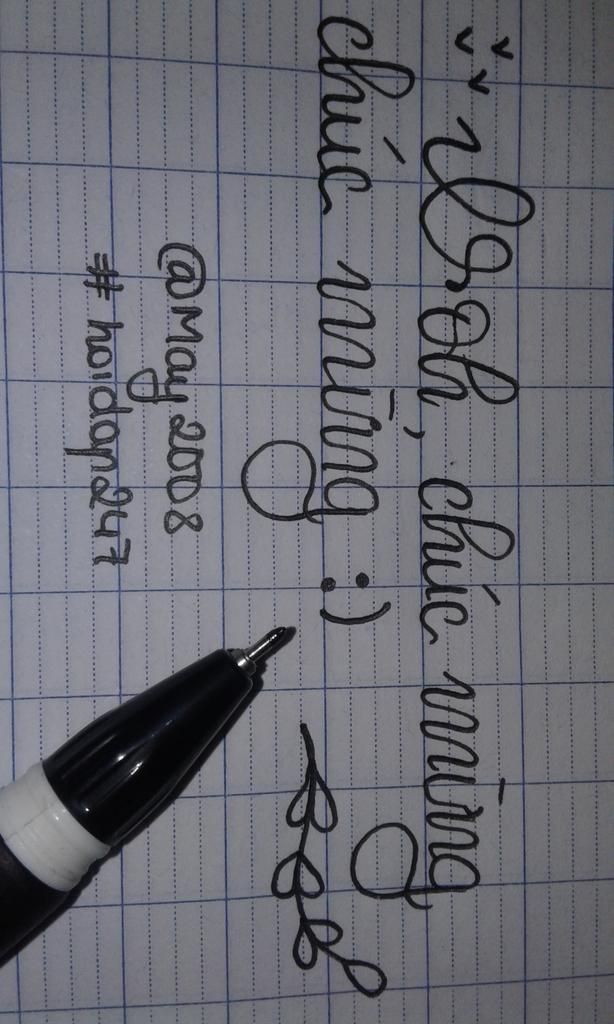 chúc mừng
chúc mừng :)
@May2008
#hoidap247